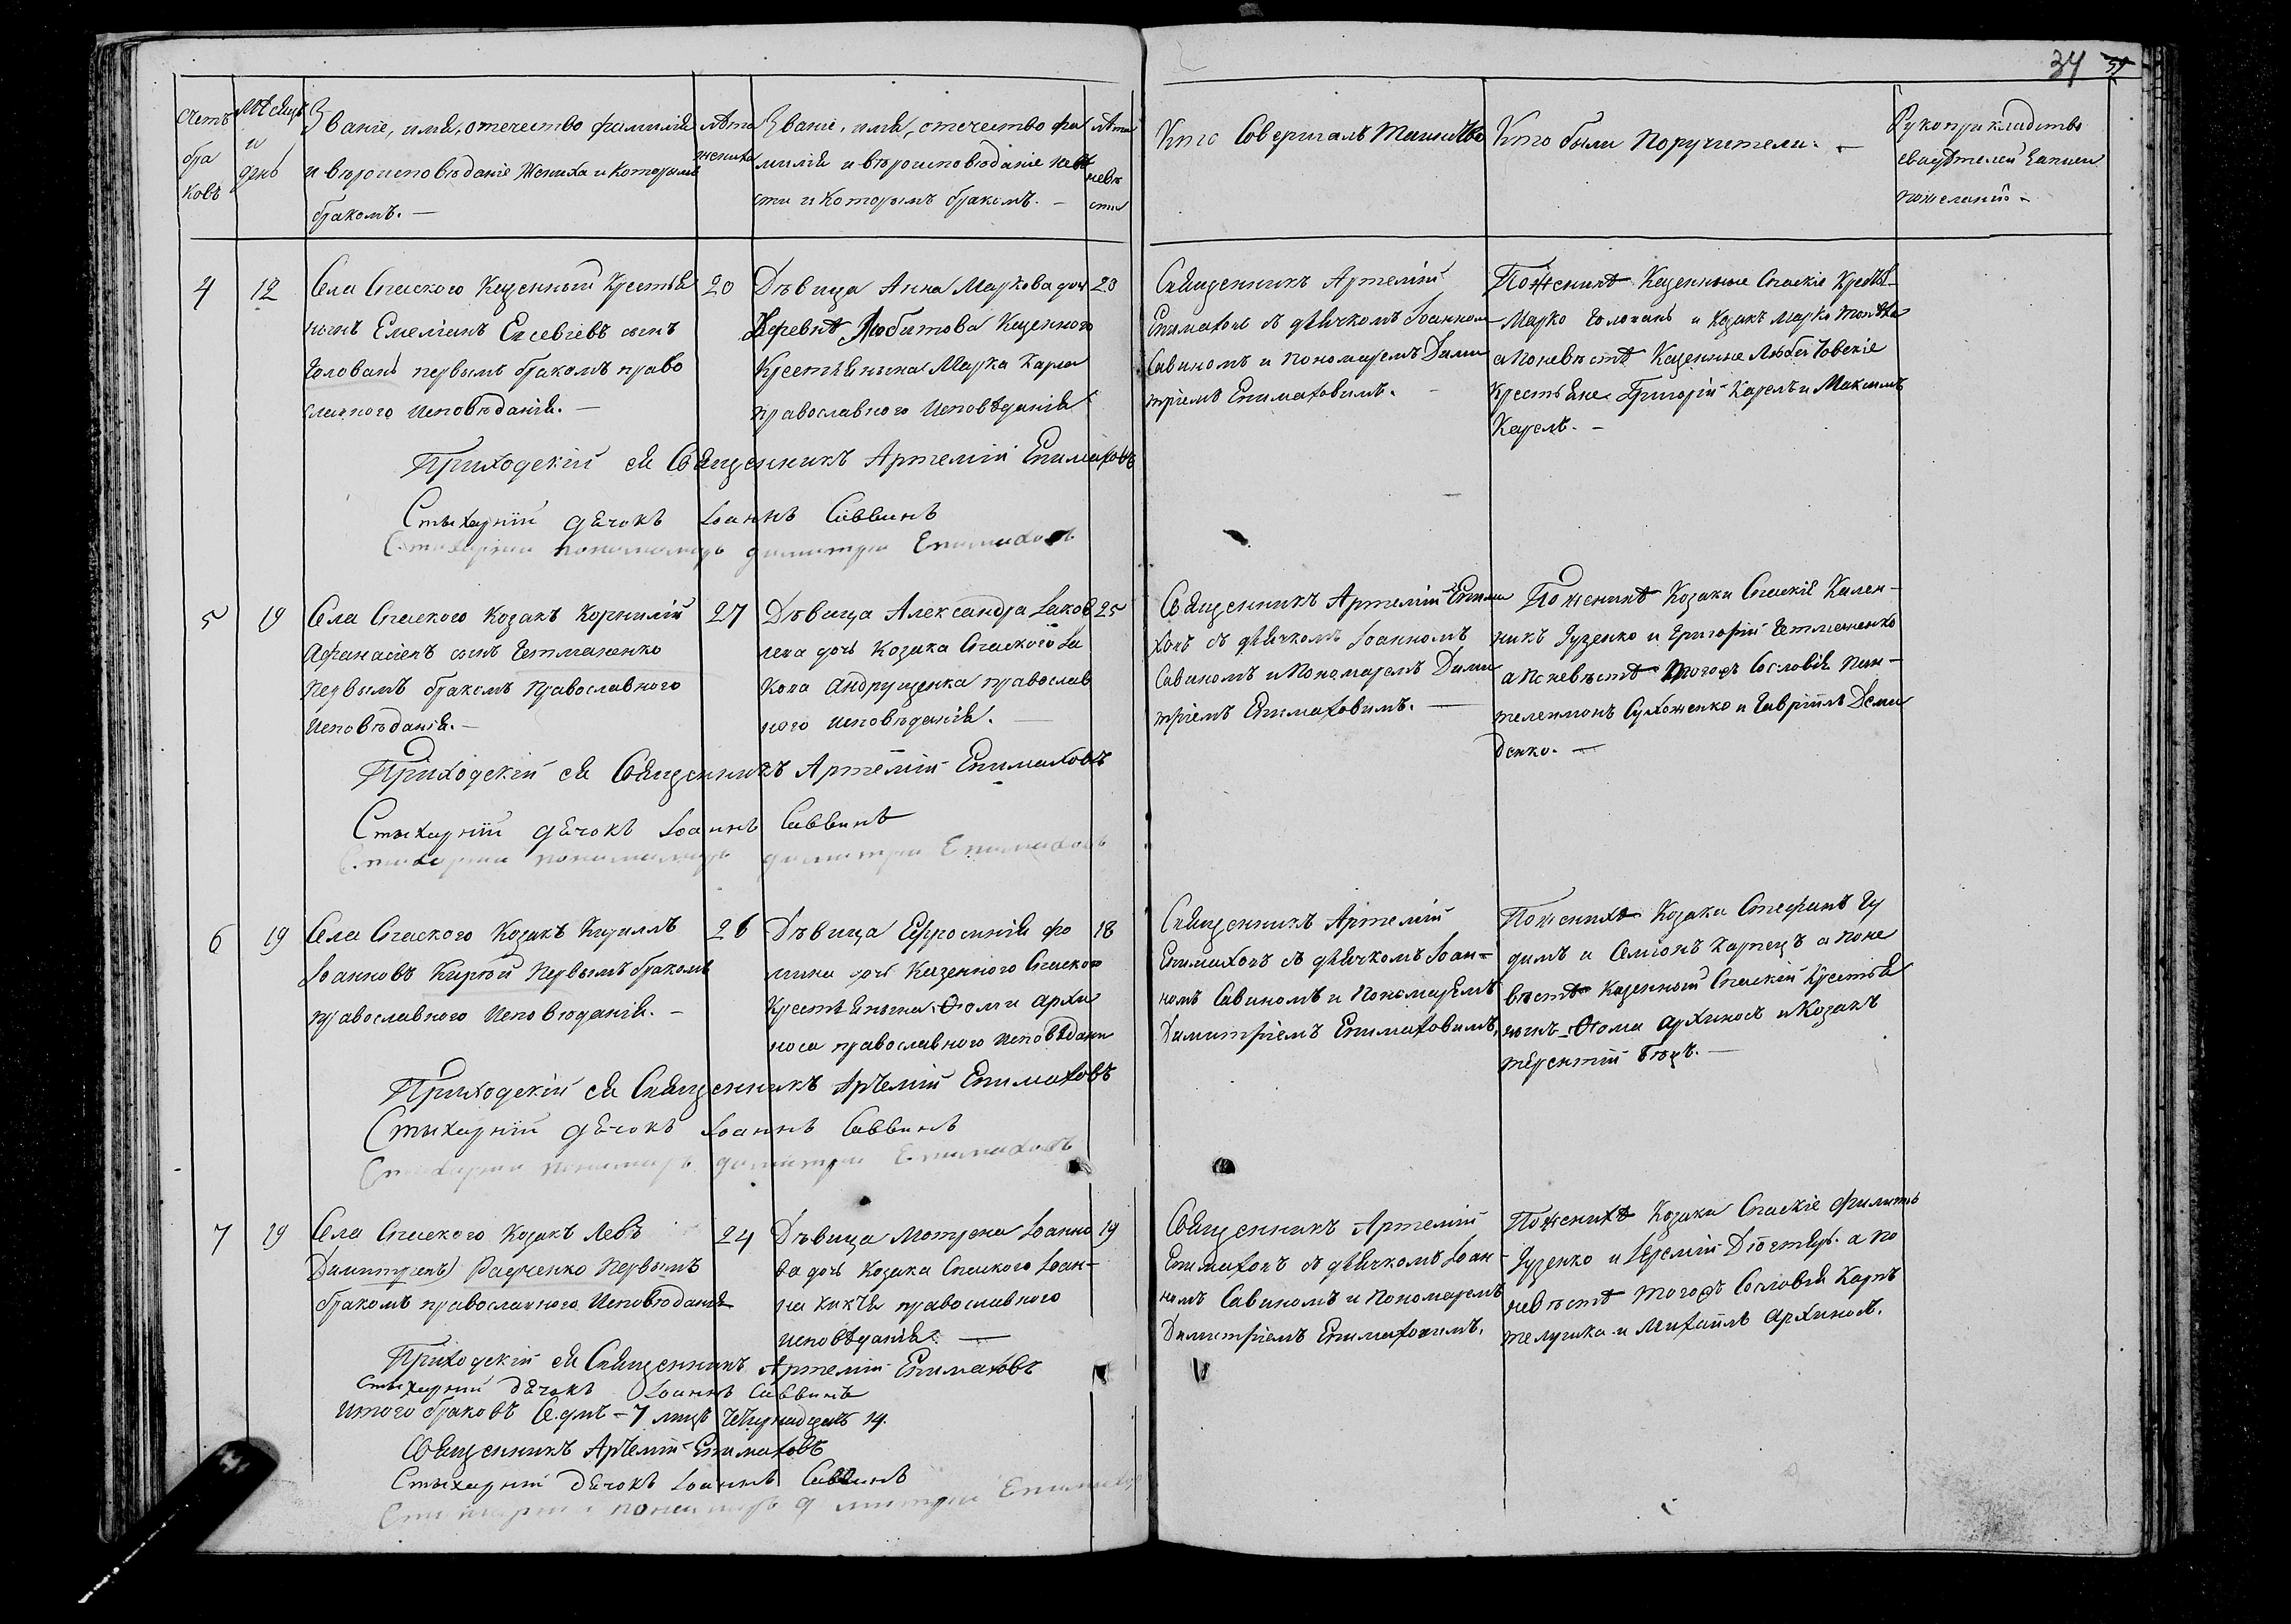 34
Счетъ бра ковъ
Мѣсяцъ и день
Званіе, имя, отечество фамилія
и вѣроисповѣданіе Жениха и Которымъ
бракомъ. —
лѣта жениха
Званіе, имя, отечество фа
милія и вѣроисповѣданіе невѣ
сты и Которымъ бракомъ. —
лѣта невѣ сты
Кто Совершалъ Таинство
Кто были Поручители. —
Рукоприкладство
свидѣтелей Записи
по желанію —
4
12
Села Спаского Казенный Крестья
нинъ Емелianъ Евсевіевъ сынъ
Головань первымъ бракомъ право
славного Исповѣданія. —
20
Дѣвица Анна Маркова дочь
Деревнѣ Любитова Казенного
Крестьянина Марка Карпа
православного Исповѣданія
20
Священникъ Артемій
Епимаховъ съ дьячкомъ Іоанномъ
Савиномъ и Пономаремъ Дими
тріемъ Епимаховымъ. —
По женихѣ Казенные Спаскіе Крестья
Марко Головань и Козакъ Марко
а по невѣстѣ Казенные Любитовскіе
Крестьяне Григорій Карпъ и Максимъ
Карпъ. —
Приходскій сей Священникъ Артемій Епимаховъ
Стыхарній дячокъ Іоаннъ Саввинъ
Стихарній пономарь димитри Епимаховъ
5
19
Села Спаского Козакъ Корнилій
Афанасіевъ сынъ Гетманенко
Первымъ бракомъ Православного
Исповѣданія. —
27
Дѣвица Александра Іаков
лева дочь Козака Спаского Іа
кова Андрущенка православ
ного исповѣданія. —
25
Священникъ Артемій Епима
ховъ съ дьячкомъ Іоанномъ
Савиномъ и Пономаремъ Дими
тріемъ Епимаховымъ. —
По женихѣ Козаки Спаскіе Кален-
никъ Гузенко и Григорій Гетманенко
а по невѣстѣ тогожъ Сословія Пан-
телеимонъ Сухоженко и Гавріилъ Деми
денко. —
Приходскій сей Священникъ Артемій Епимаховъ
Стыхарній дячокъ Іоаннъ Саввинъ
Стихарній пономарь димитри Епимаховъ
6
19
Села Спаского Козакъ Кириллъ
Іоанновъ Кирѣй Первымъ бракомъ
православного Исповѣданія. —
26
Дѣвица Ефросинія Фо
мина дочь Казенного Спаского
Крестьянина Ѳомы Архи
носа православного Исповѣдани
18
Священникъ Артемій
Епимаховъ съ дьячкомъ Іоан=
номъ Савиномъ и Пономаремъ
Димитріемъ Епимаховымъ.
По женихѣ Козаки Стефанъ Гу
димъ и Семіонъ Карпецъ а по не
вѣстѣ Казенный Спаскій Крестья
нинъ Ѳома Архиносъ и Козакъ
терентій Бѣцъ. —
Приходскій сей Священникъ Артемій Епимаховъ
Стыхарній дячокъ Іоаннъ Саввинъ
Стихарній пономарь димитри Епимаховъ
7
19
Села Спаского Козакъ Левъ
Димитріевъ Радченко Первымъ
бракомъ православного Исповѣданія
24
Дѣвица Мотрона Іоанно
ва дочь Козака Спаского Іоан-
на православного
исповѣданія. —
19
Священникъ Артемій
Епимаховъ съ дьячкомъ Іоан-
номъ Савиномъ и Пономаремъ
Димитріемъ Епимаховымъ.
По женихѣ Козаки Спаскіе Филипъ
Гузенко и Іеремій а по
невѣстѣ тогожъ Сословія
и Михаилъ Архиносъ.
Приходскій сей Священникъ Артемій Епимаховъ
Стыхарний дячокъ Іоаннъ Саввинъ
Итого браковъ Седмъ – 7 лицъ Четырнадцать 14.
Священникъ Артемій Епимаховъ
Стыхарній дячокъ Іоаннъ Саввинъ
Стихарни пономарь димитрий Епимахов